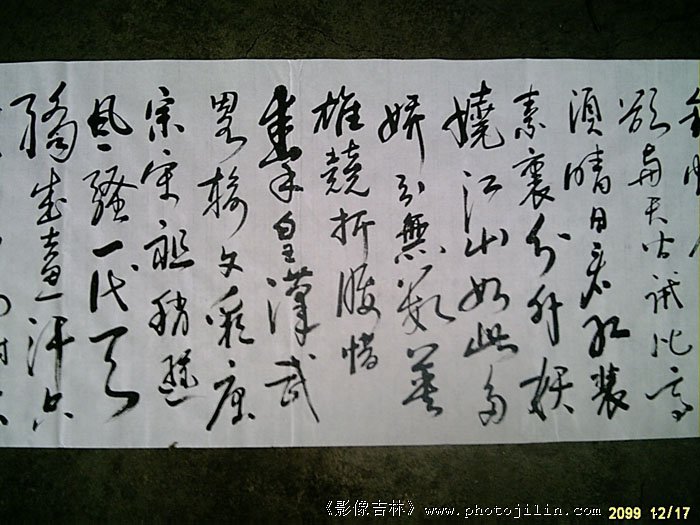 欲與天公試比高
須晴日看紅裝
素裹分外妖
嬈江山如此多
嬌引無數英
雄競折腰惜
秦皇漢武
畧輸文彩唐
宗宋祖稍遜
風騷一代天
驕成吉思汗只
《影像吉林》www.photojilin.com
2099 12/17